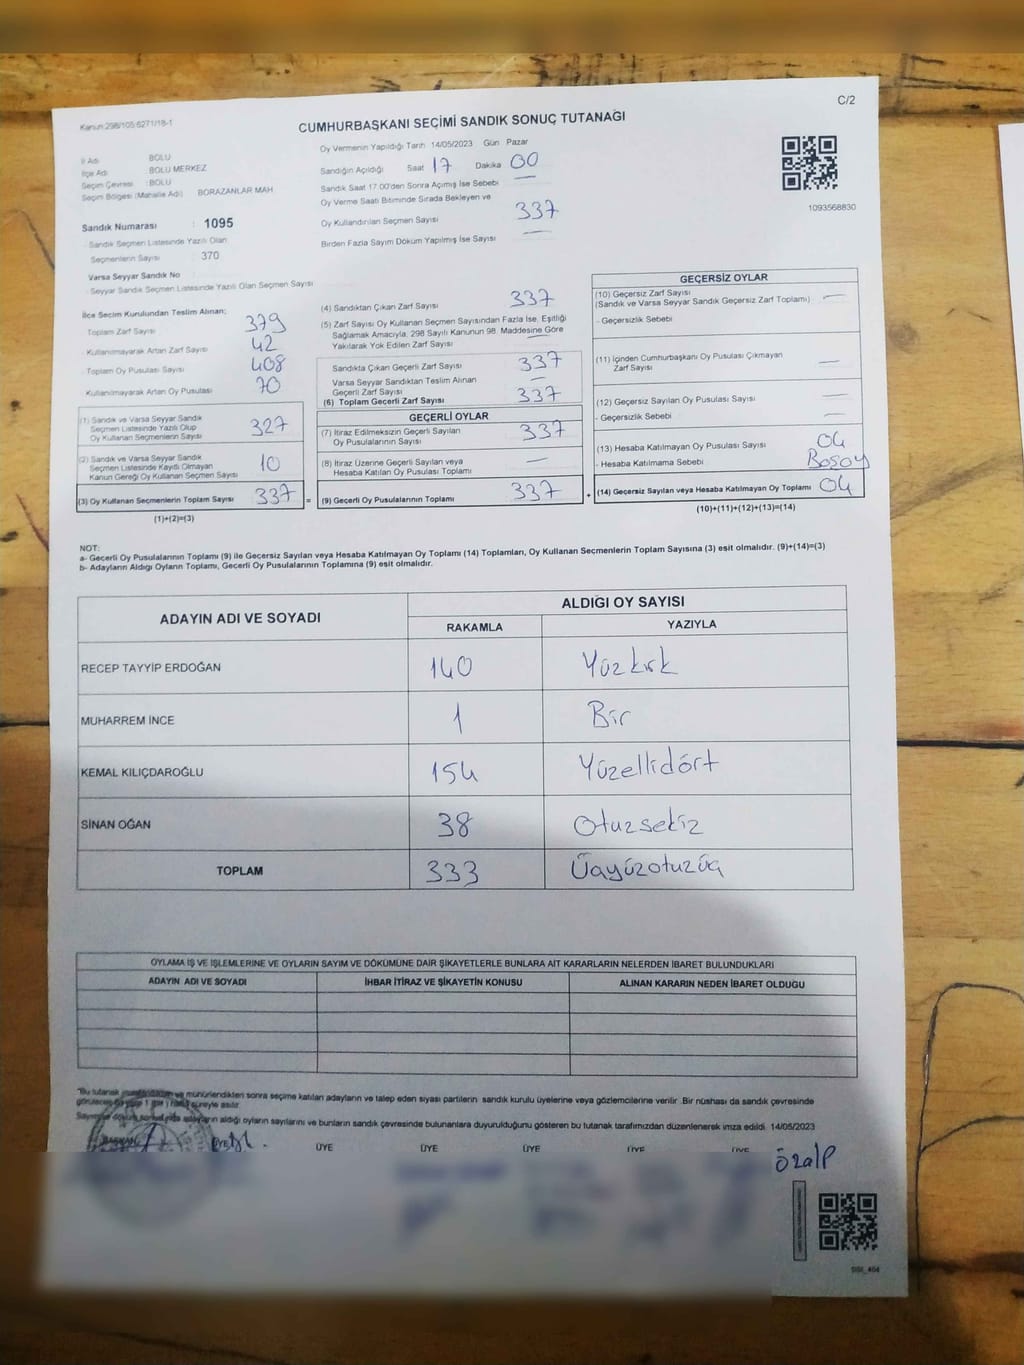 C/2
Kanun:298/105:6271/18-1
CUMHURBAŞKANI SEÇİMİ SANDIK SONUÇ TUTANAĞI
İl Adı BOLU
İlçe Adı BOLU MERKEZ
Seçim Çevresi :BOLU
Seçim Bölgesi (Mahalle Adı) BORAZANLAR MAH
Sandık Numarası : 1095
- Sandık Seçmen Listesinde Yazılı Olan
Seçmenlerin Sayısı 370
Varsa Seyyar Sandık No
- Seyyar Sandık Seçmen Listesinde Yazılı Olan Seçmen Sayısı
Oy Vermenin Yapıldığı Tarih 14/05/2023 Gün Pazar
Sandığın Açıldığı Saat 17 Dakika 00
Sandık Saat 17.00'den Sonra Açılmış İse Sebebi —
Oy Verme Saati Bitiminde Sırada Bekleyen ve
Oy Kullandırılan Seçmen Sayısı 337
Birden Fazla Sayım Döküm Yapılmış İse Sayısı —
1093568830
İlçe Seçim Kurulundan Teslim Alınan;
Toplam Zarf Sayısı 379
- Kullanılmayarak Artan Zarf Sayısı 42
- Toplam Oy Pusulası Sayısı 408
Kullanılmayarak Artan Oy Pusulası 70
(1) Sandık ve Varsa Seyyar Sandık
Seçmen Listesinde Yazılı Olup
Oy Kullanan Seçmenlerin Sayısı 327
(2) Sandık ve Varsa Seyyar Sandık
Seçmen Listesinde Kayıtlı Olmayan
Kanun Gereği Oy Kullanan Seçmen Sayısı 10
(3) Oy Kullanan Seçmenlerin Toplam Sayısı 337 =
(1)+(2)=(3)
(4) Sandıktan Çıkan Zarf Sayısı 337
(5) Zarf Sayısı Oy Kullanan Seçmen Sayısından Fazla İse, Eşitliği
Sağlamak Amacıyla, 298 Sayılı Kanunun 98. Maddesine Göre
Yakılarak Yok Edilen Zarf Sayısı —
Sandıkta Çıkan Geçerli Zarf Sayısı 337
Varsa Seyyar Sandıktan Teslim Alınan
Geçerli Zarf Sayısı —
(6) Toplam Geçerli Zarf Sayısı 337
GEÇERLİ OYLAR
(7) İtiraz Edilmeksizin Geçerli Sayılan
Oy Pusulalarının Sayısı 337
(8) İtiraz Üzerine Geçerli Sayılan veya
Hesaba Katılan Oy Pusulası Toplamı —
(9) Geçerli Oy Pusulalarının Toplamı 337 +
GEÇERSİZ OYLAR
(10) Geçersiz Zarf Sayısı
(Sandık ve Varsa Seyyar Sandık Geçersiz Zarf Toplamı) —
- Geçersizlik Sebebi
(11) İçinden Cumhurbaşkanı Oy Pusulası Çıkmayan
Zarf Sayısı —
(12) Geçersiz Sayılan Oy Pusulası Sayısı —
- Geçersizlik Sebebi —
(13) Hesaba Katılmayan Oy Pusulası Sayısı 04
- Hesaba Katılmama Sebebi Boşoy
(14) Geçersiz Sayılan veya Hesaba Katılmayan Oy Toplamı 04
(10)+(11)+(12)+(13)=(14)
NOT:
a- Geçerli Oy Pusulalarının Toplamı (9) ile Geçersiz Sayılan veya Hesaba Katılmayan Oy Toplamı (14) Toplamları, Oy Kullanan Seçmenlerin Toplam Sayısına (3) eşit olmalıdır. (9)+(14)=(3)
b- Adayların Aldığı Oyların Toplamı, Geçerli Oy Pusulalarının Toplamına (9) eşit olmalıdır.
ADAYIN ADI VE SOYADI ALDIĞI OY SAYISI
RAKAMLA YAZIYLA
RECEP TAYYİP ERDOĞAN 140 Yüzkırk
MUHARREM İNCE 1 Bir
KEMAL KILIÇDAROĞLU 154 Yüzellidört
SİNAN OĞAN 38 Otuzsekiz
TOPLAM 333 Üçyüzotuzüç
OYLAMA İŞ VE İŞLEMLERİNE VE OYLARIN SAYIM VE DÖKÜMÜNE DAİR ŞİKAYETLERLE BUNLARA AİT KARARLARIN NELERDEN İBARET BULUNDUKLARI
ADAYIN ADI VE SOYADI İHBAR İTİRAZ VE ŞİKAYETİN KONUSU ALINAN KARARIN NEDEN İBARET OLDUĞU
"Bu tutanak ve mühürlendikten sonra seçime katılan adayların ve talep eden siyasi partilerin sandık kurulu üyelerine veya gözlemcilerine verilir. Bir nüshası da sandık çevresinde
süreyle asılır.
adayların aldığı oyların sayılarını ve bunların sandık çevresinde bulunanlara duyurulduğunu gösteren bu tutanak tarafımızdan düzenlenerek imza edildi. 14/05/2023
BAŞKAN ÜYE ÜYE ÜYE ÜYE ÜYE ÜYE
Özalp